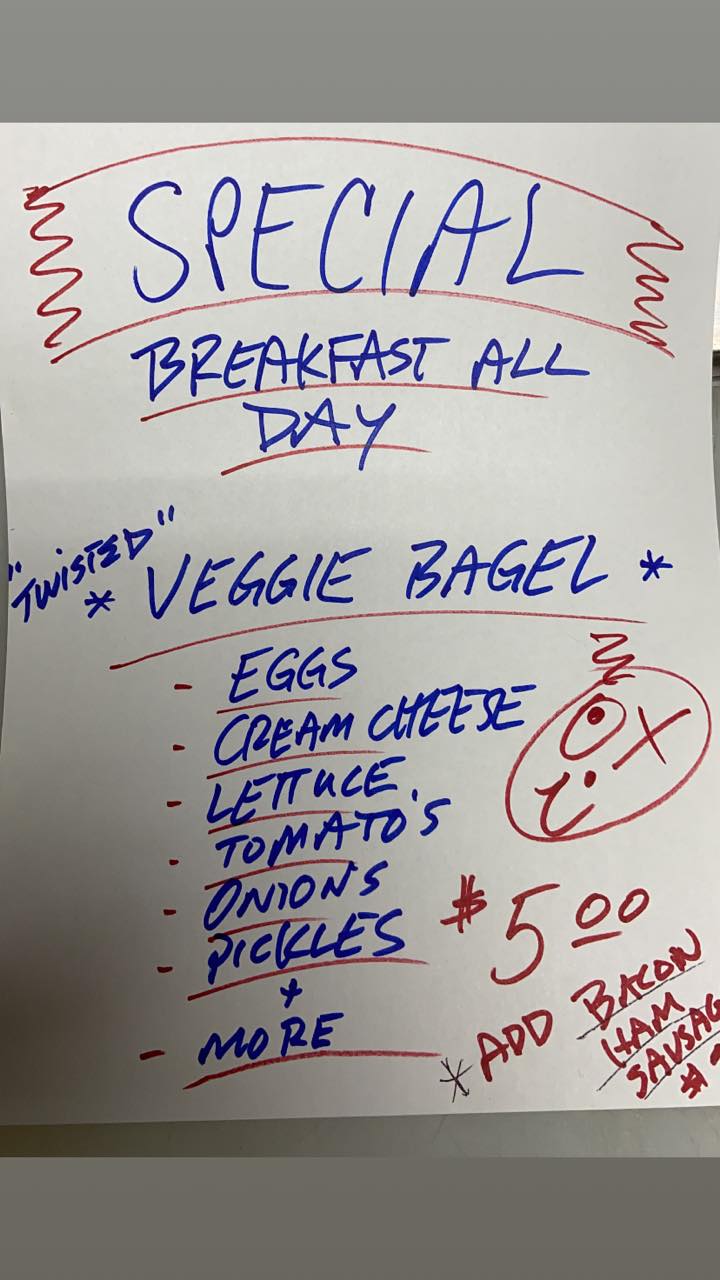 SPECIAL
BREAKFAST ALL
DAY
"TWISTED"
* VEGGIE BAGEL *
- EGGS
- CREAM CHEESE
- LETTUCE
- TOMATO'S
- ONIONS
- PICKLES
+
- MORE
$5.00
* ADD BACON
HAM